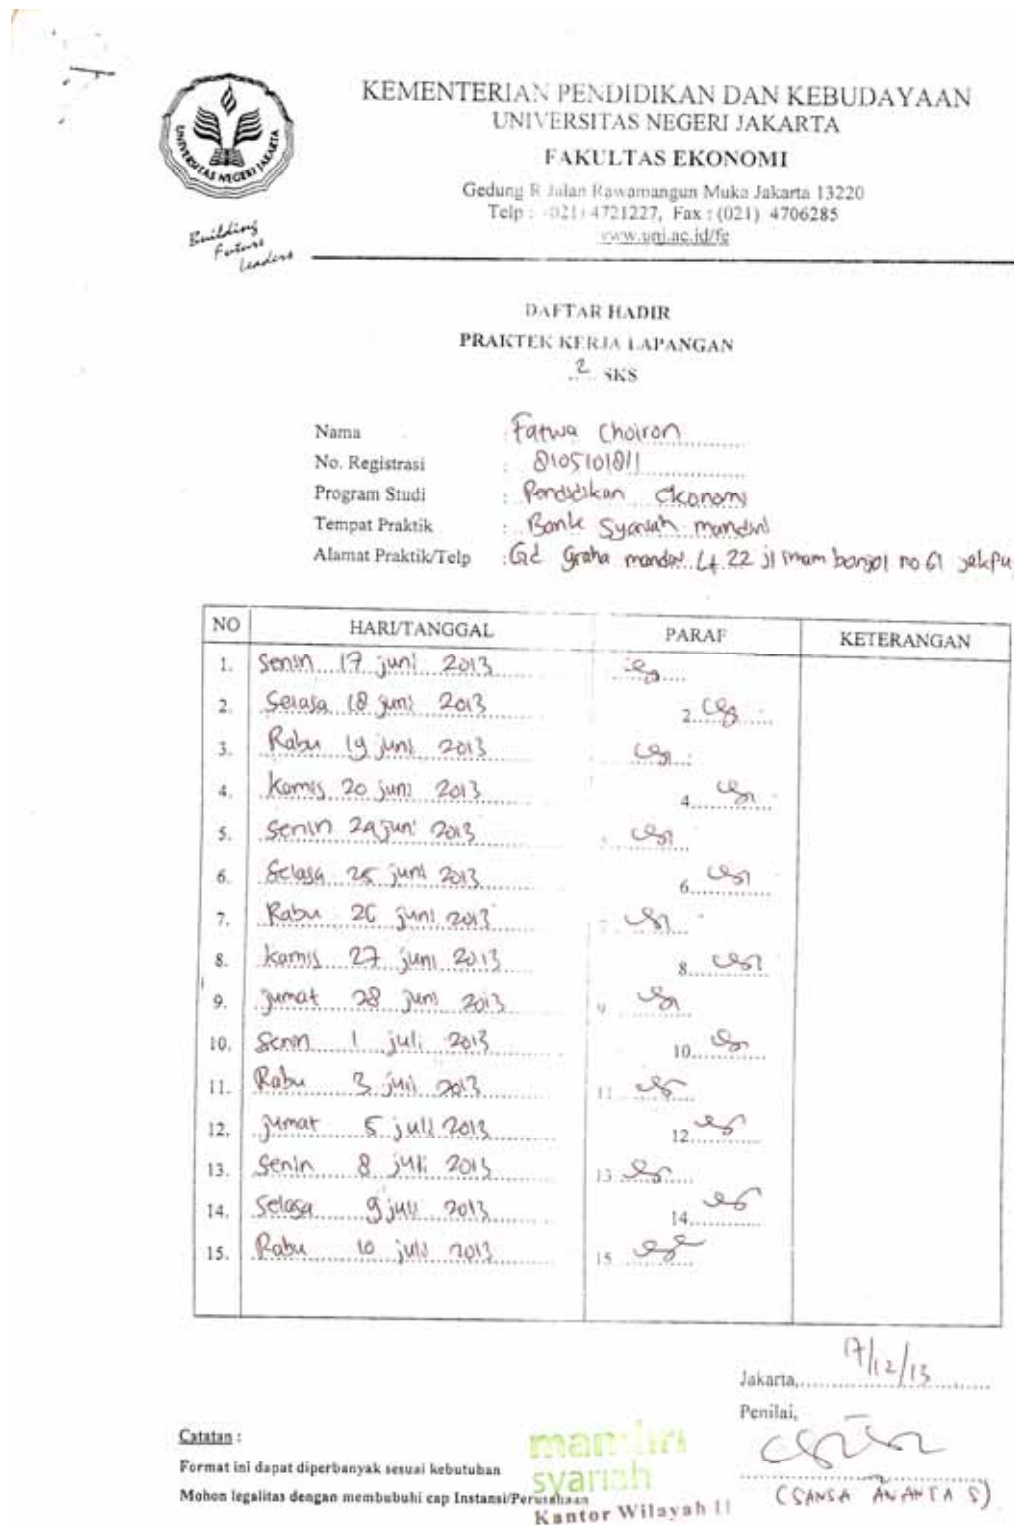 KEMENTERIAN PENDIDIKAN DAN KEBUDAYAAN
UNIVERSITAS NEGERI JAKARTA
FAKULTAS EKONOMI
Gedung R Jalan Rawamangun Muka Jakarta 13220
Telp : (021) 4721227, Fax : (021) 4706285
www.unj.ac.id/fe
UNIVERSITAS NEGERI JAKARTA
Building
Future
Leaders
DAFTAR HADIR
PRAKTEK KERJA LAPANGAN
2 SKS
Nama : Fatwa Choiron
No. Registrasi : 8105101811
Program Studi : Pendidikan ekonomi
Tempat Praktik : Bank Syariah mandiri
Alamat Praktik/Telp : Gd graha mandiri Lt 22 jl imam bonjol no 61 jakpu
NO HARI/TANGGAL PARAF KETERANGAN
1. Senin 17 juni 2013
2. Selasa 18 juni 2013 2.
3. Rabu 19 juni 2013
4. Kamis 20 juni 2013 4.
5. Senin 24 juni 2013
6. Selasa 25 juni 2013 6.
7. Rabu 26 juni 2013
8. Kamis 27 juni 2013 8.
9. jumat 28 juni 2013 9
10. Senin 1 juli 2013 10.
11. Rabu 3 juli 2013 11
12. jumat 5 juli 2013 12.
13. Senin 8 juli 2013 13
14. Selasa 9 juli 2013 14.
15. Rabu 10 juli 2013 15
Jakarta, 17/12/13
Penilai,
(SANSA ANANTA S)
Catatan :
Format ini dapat diperbanyak sesuai kebutuhan
Mohon legalitas dengan membubuhi cap Instansi/Perusahaan
mandiri
syariah
Kantor Wilayah II